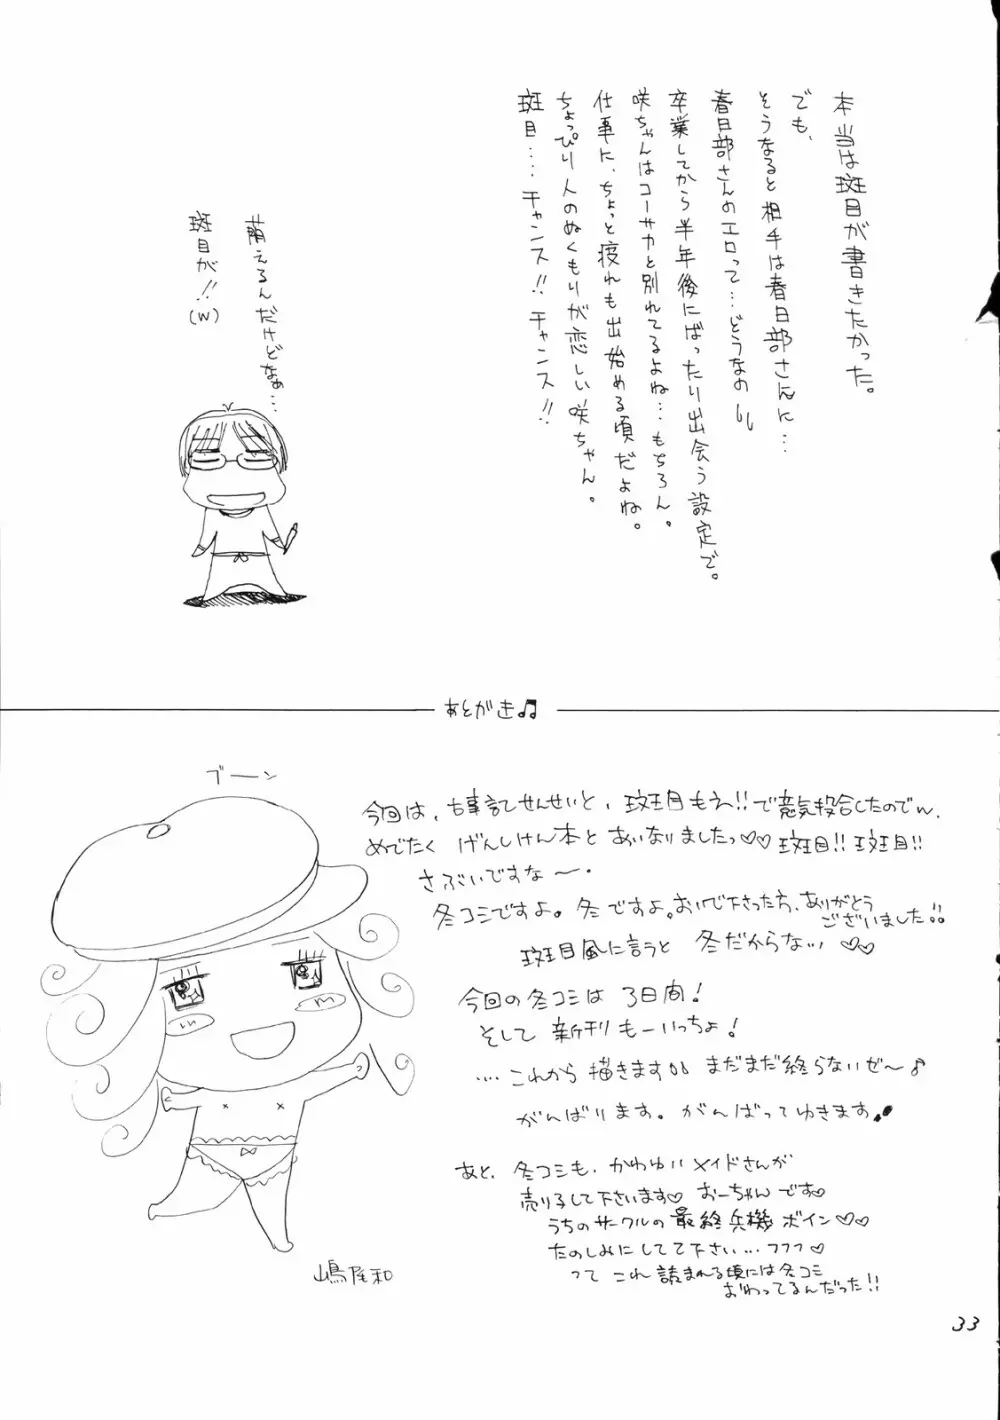 本当は斑目が書きたかった。
でも、
そうなると相手は春日部さんに…
春日部さんのエロって…どうなの
卒業してから半年後にばったり出会う設定で。
咲ちゃんはコーサカと別れてるよね…もちろん。
仕事に、ちょっと疲れも出始める頃だよね。
ちょっぴり人のぬくもりが恋しい咲ちゃん。
斑目…チャンス!!チャンス!!
萌えるんだけどなぁ…
斑目が!!(W)
あとがき♫
ブーン
今回は、古事記せんせいと、斑目もえ!!で意気投合したのでw、
めでたく げんしけん本と あいなりましたっ♡♡ 斑目!! 斑目!!
さぶいですな〜・
冬コミですよ。冬ですよ。おいで下さった方、ありがとう
ございました!!
斑目風に言うと 冬だからなっ、♡♡
今回の冬コミは 3日間!
そして 新刊も一いっちょ!
…これから描きます まだまだ終らないぜ〜♪
がんばります。がんばってゆきます
あと、冬コミも、かわゆいメイドさんが
売り子して下さいます♡ おーちゃんです♡
うちのサークルの最終兵機 ボイン♡♡
たのしみにしてて下さい…フフフ♡
って これ 読まれる頃には冬コミ
おわってるんだった!!
嶋屋和
33